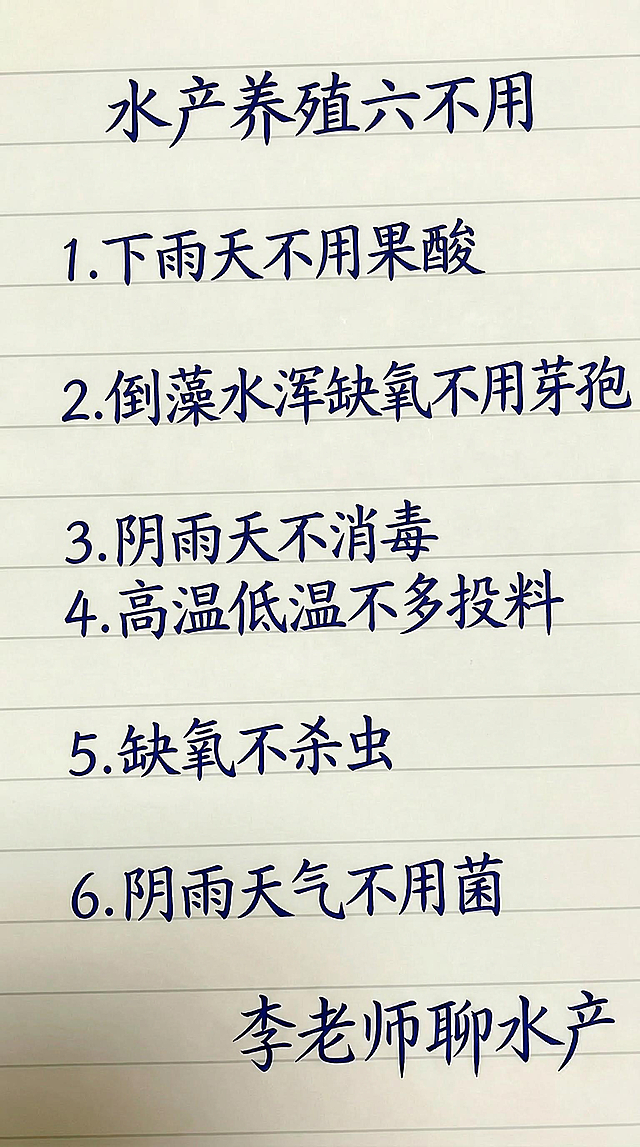 水产养殖六不用
1.下雨天不用果酸
2.倒藻水浑缺氧不用芽孢
3.阴雨天不消毒
4.高温低温不多投料
5.缺氧不杀虫
6.阴雨天气不用菌
李老师聊水产